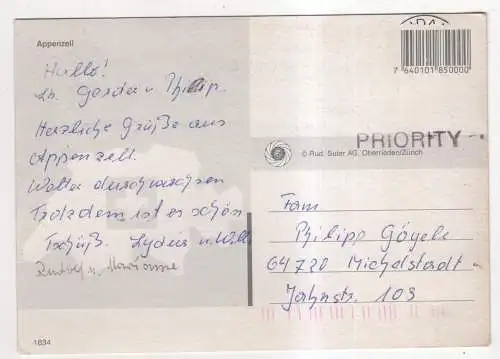 Appenzell
Hallo!
Lb. Gerda u Philip.
Herzliche Grüße aus
Appenzell.
Wetter durchwachsen
Trotzdem ist es schön
Tschüß. Lydia u. Willi
Rudolf u. Marianne
1834
7 640101 850000
PRIORITY
© Rud. Suter AG, Oberrieden/Zürich
Fam
Philipp Göyele
64720 Michelstadt
Jahnstr. 103